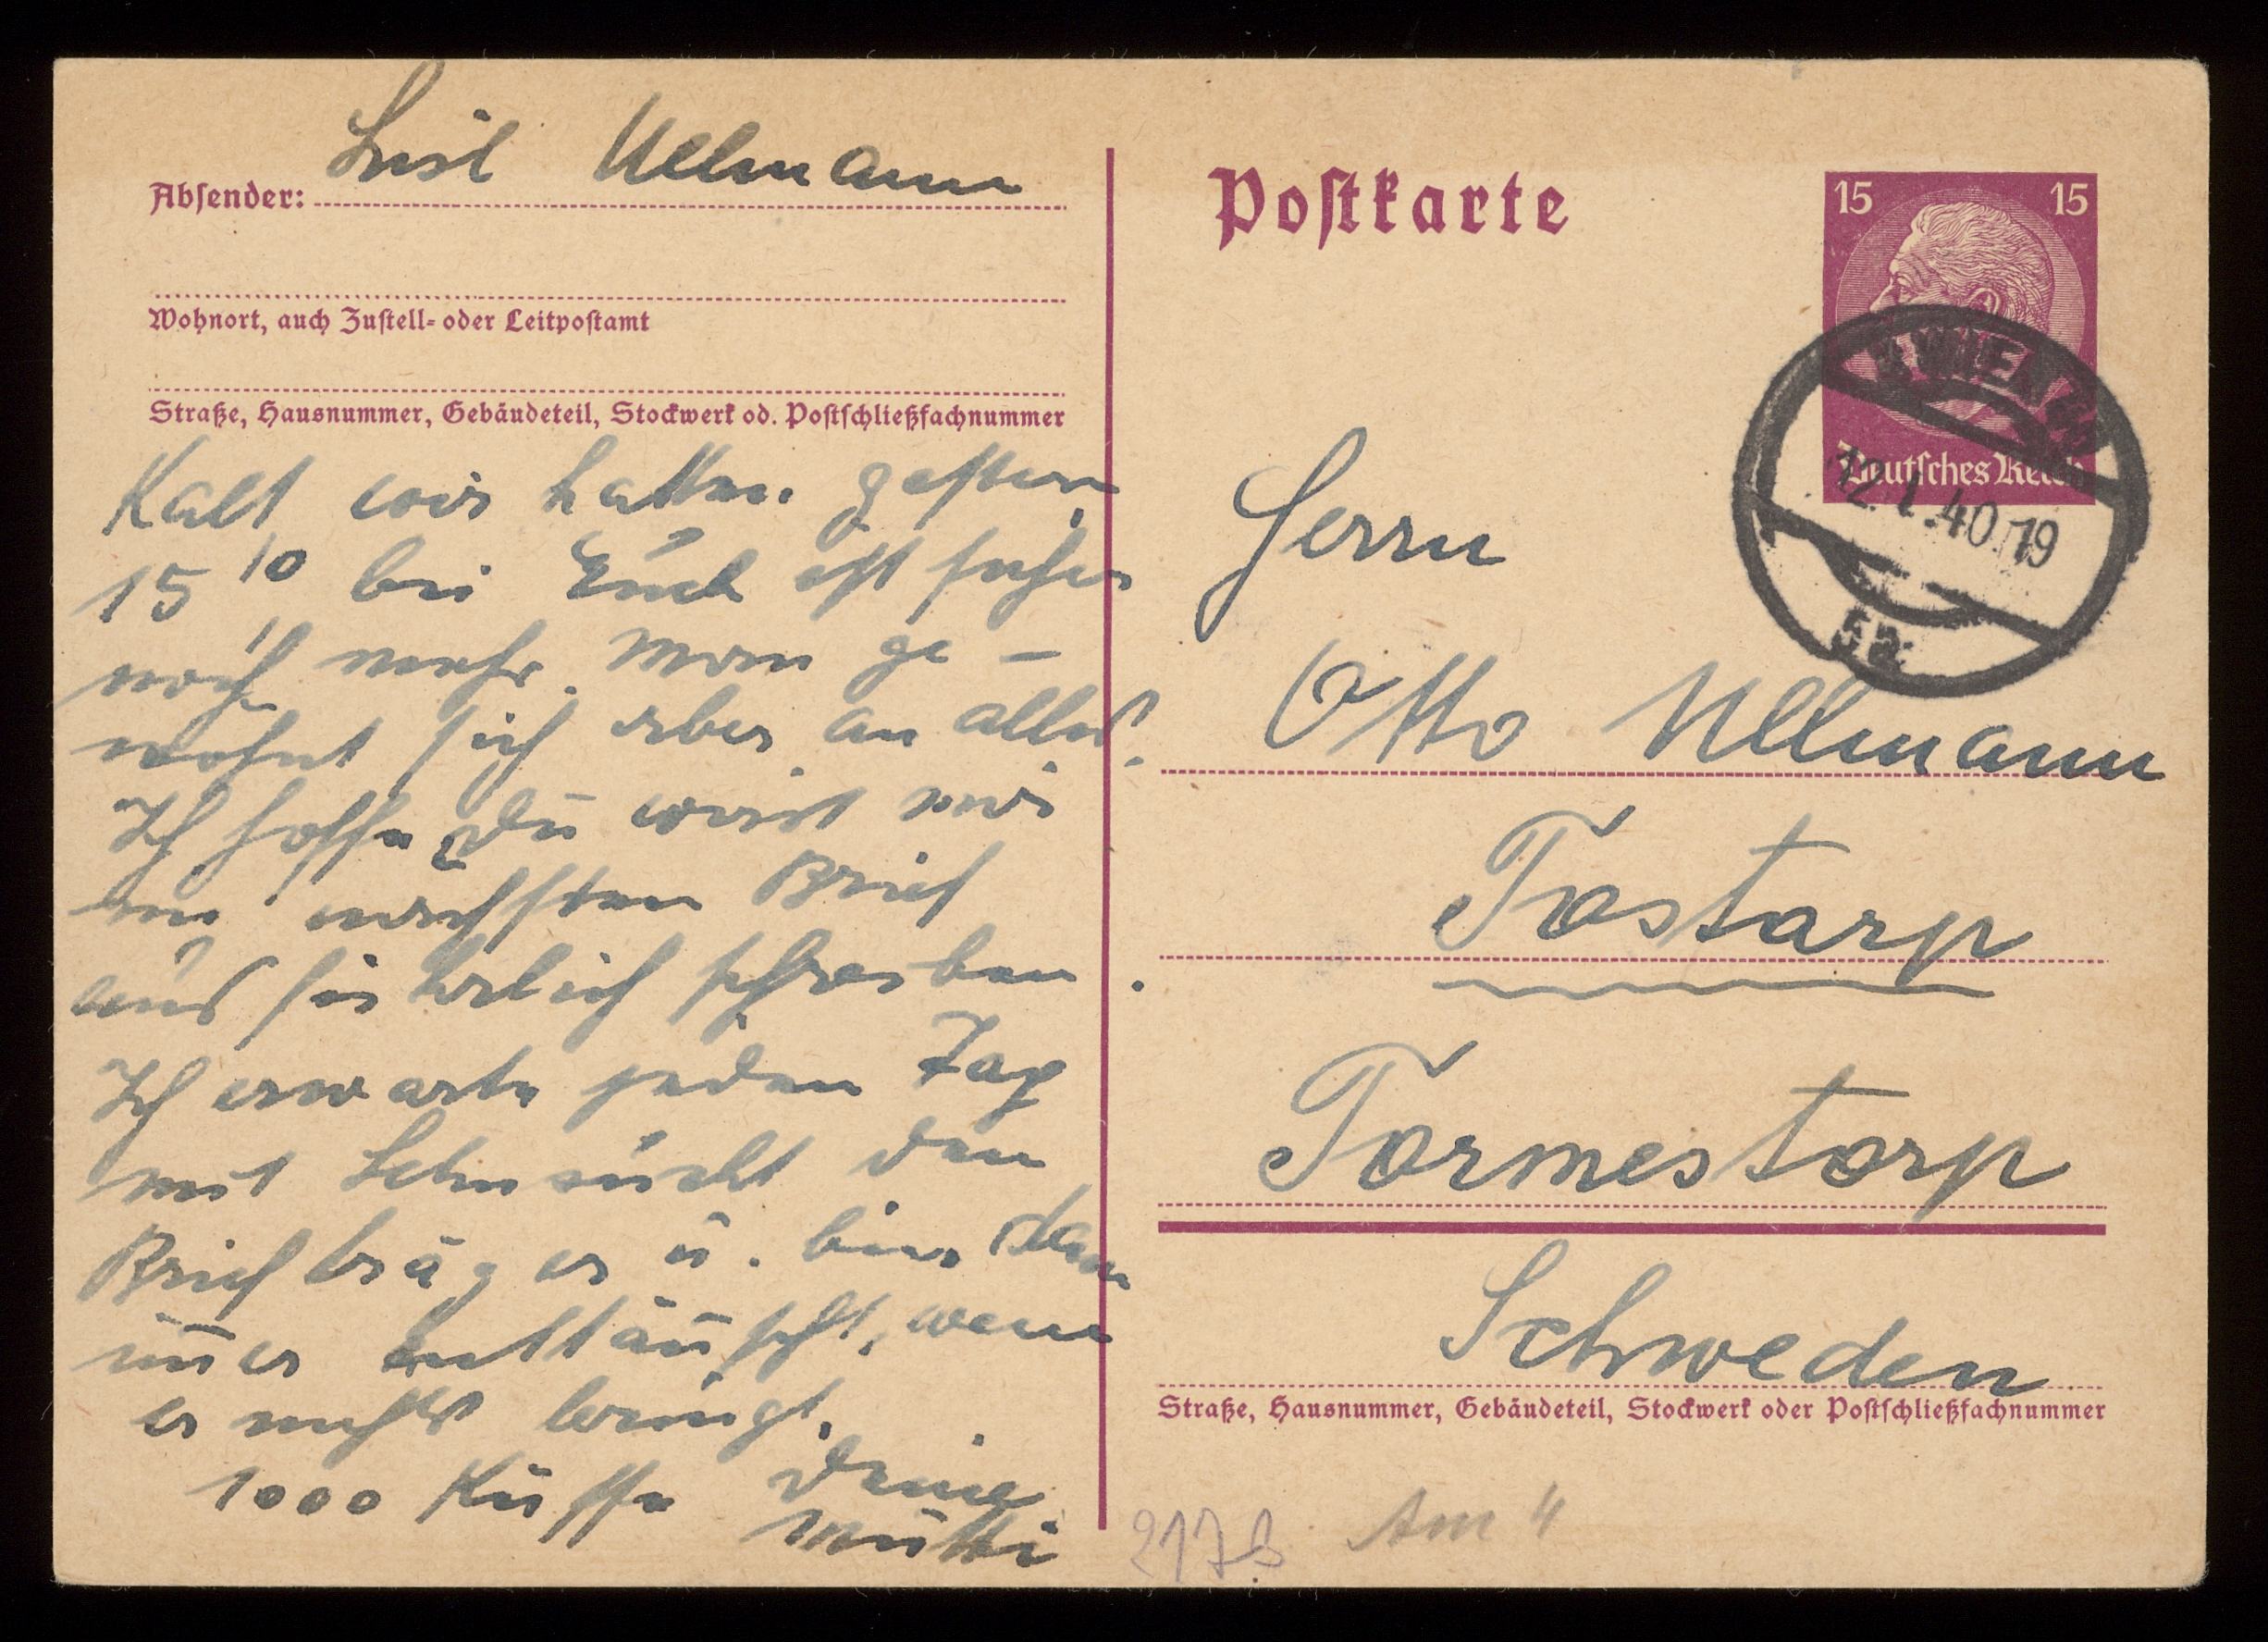 Absender: Lisl Ullmann
Wohnort, auch Zustell- oder Leitpostamt
Straße, Hausnummer, Gebäudeteil, Stockwerk od. Postschließfachnummer
Kalt wir hatten gestern
15 10 bei Euch ist sicher
noch mehr. Man ge-
wöhnt sich aber an alles.
Ich hoffe Du wirst mir
im nächsten Brief
ausführlich schreiben.
Ich erwarte jeden Tag
mit Sehnsucht den
Briefträger u. bin dann
im̅er enttäuscht, wenn
er nichts bringt.
1000 Küsse Deine
Mutti
Postkarte
15 15
Deutsches Reich
WIEN
12.1.40.19
Herrn
Otto Ullmann
Tostarp
Tormestorp
Schweden
Straße, Hausnummer, Gebäudeteil, Stockwerk oder Postschließfachnummer